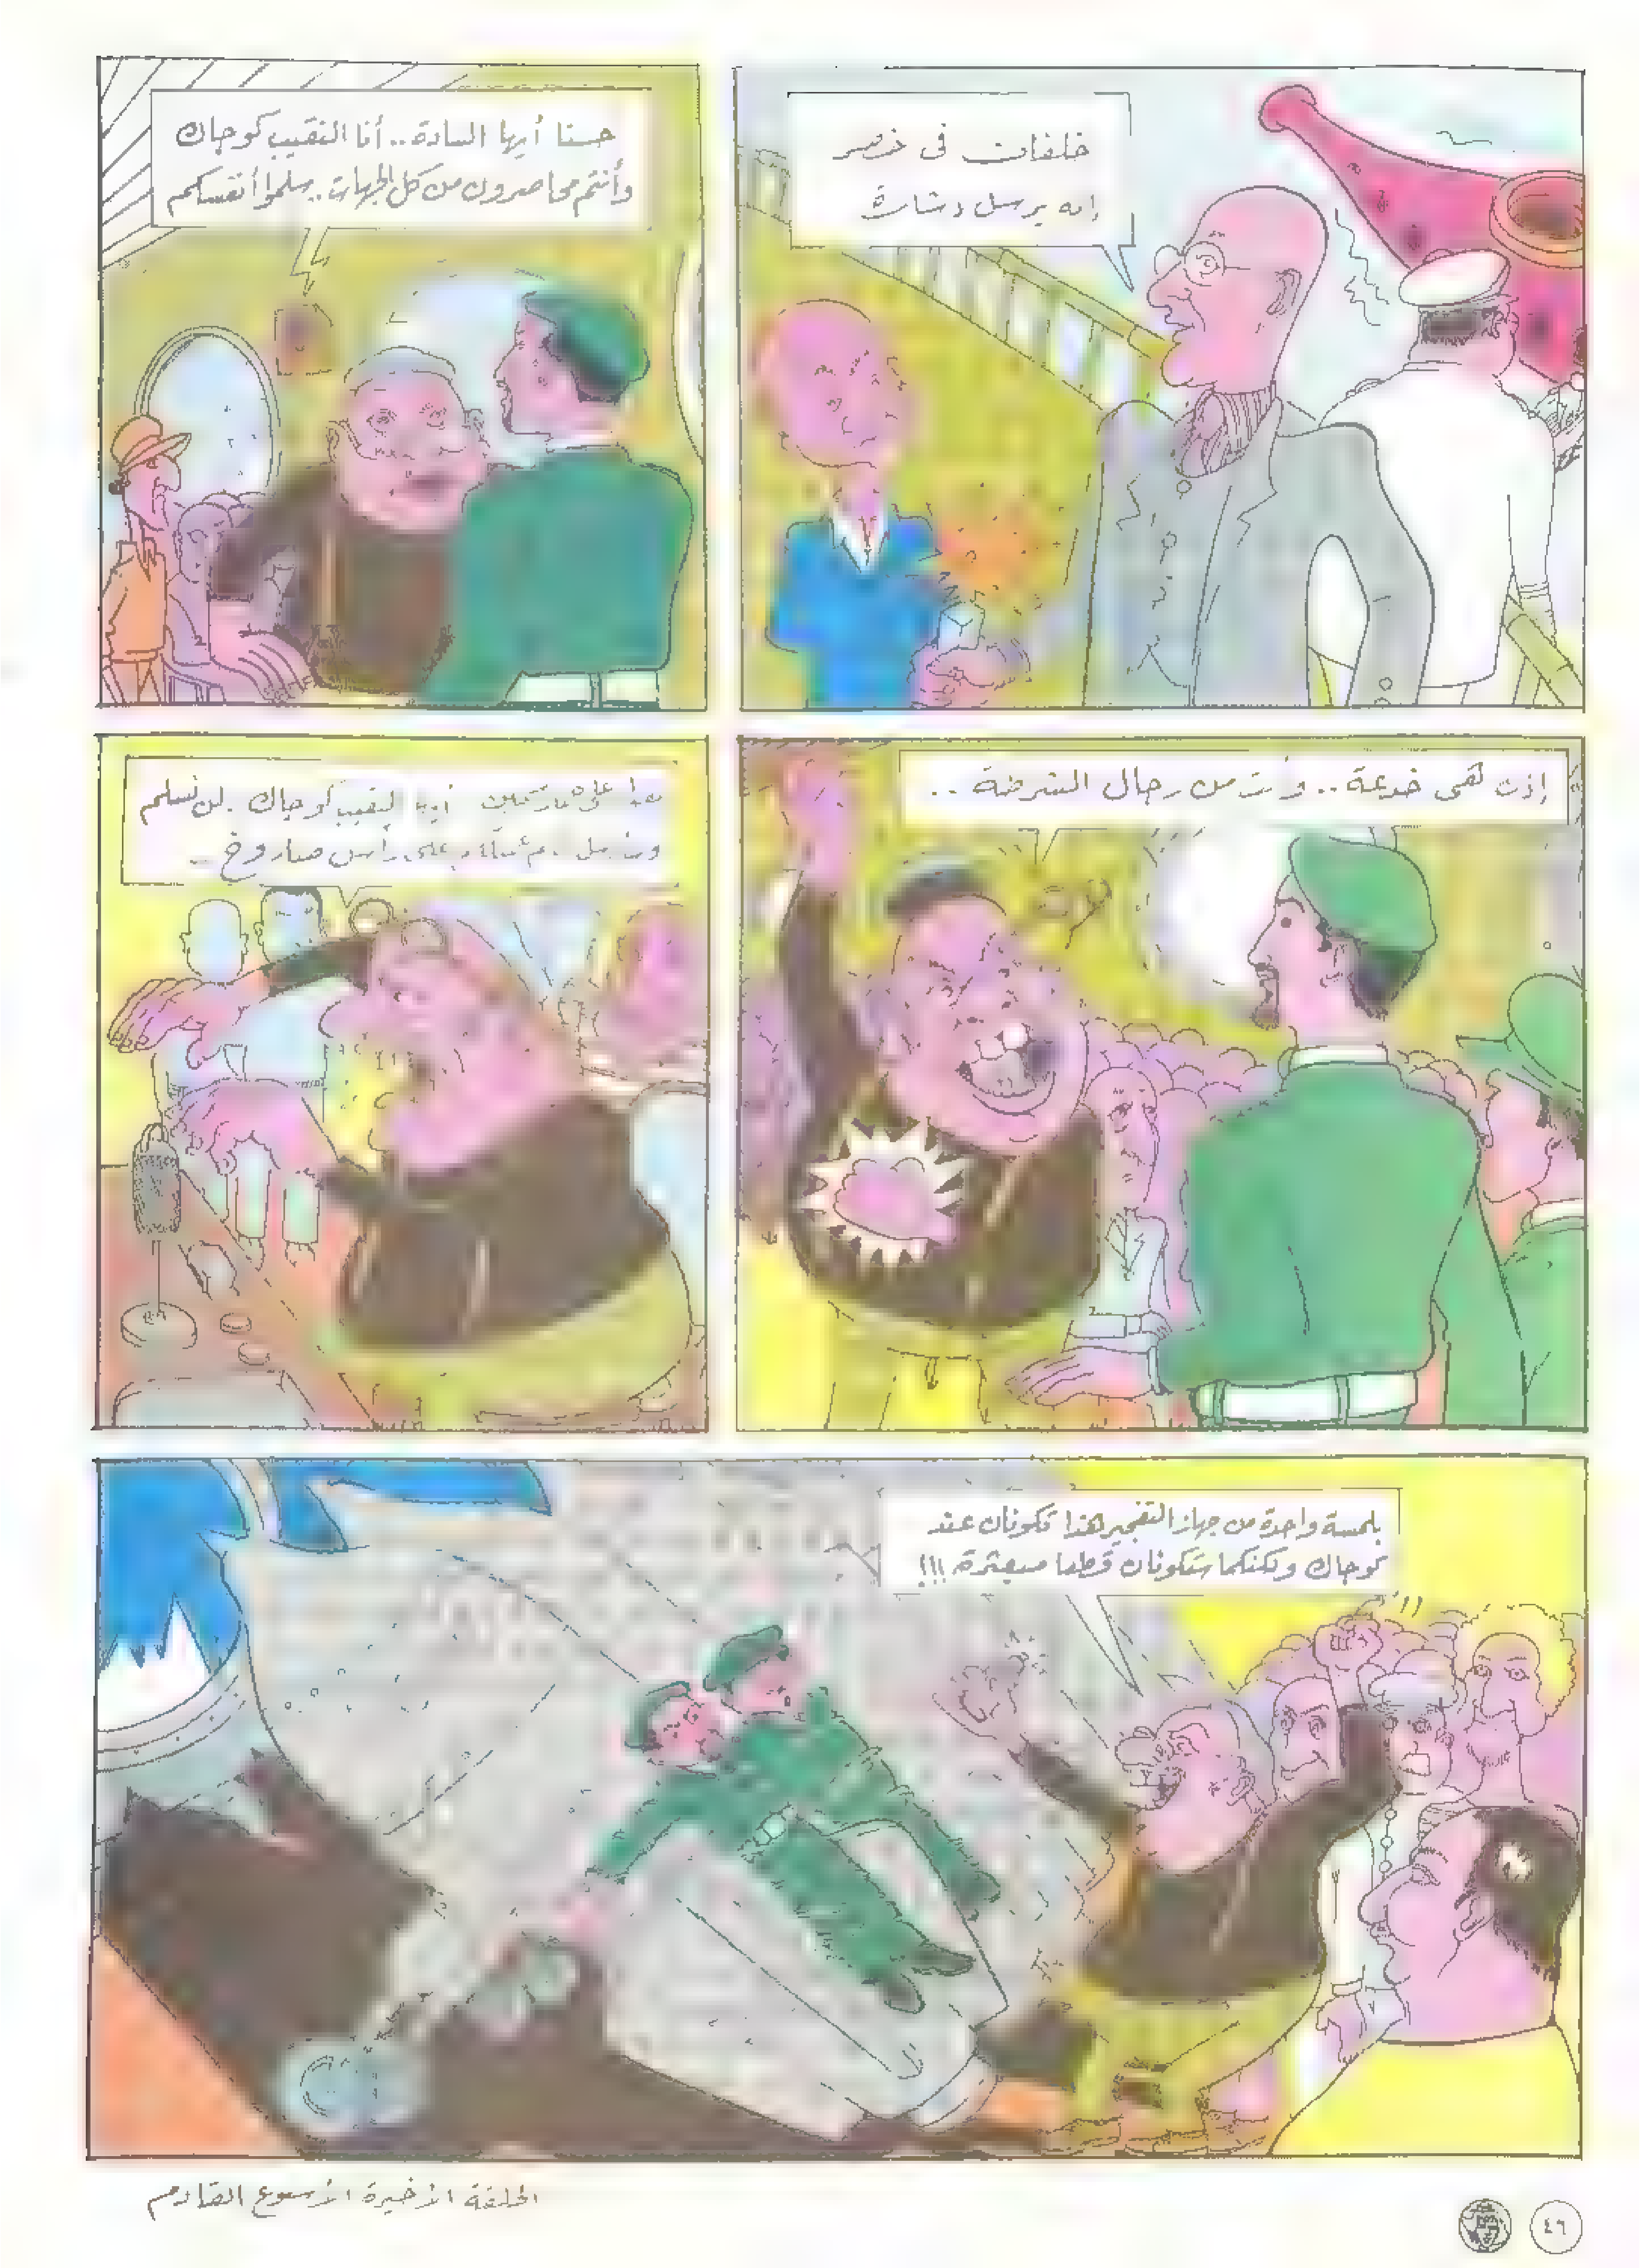 خلفان في خطر
إنه يرسل إشارة
حسنا أيها السادة.. أنا النقيب كوجاك
وأنتم محاصرون من كل الجهات.. سلموا أنفسكم
إذن فهي خدعة.. من رجال الشرطة..
أيها النقيب كوجاك. لن نسلم
على رأس صاروخ..
بلمسة واحدة من جهاز التفجير هذا تكونان عند
كوجاك ولكنكما ستكونان قطعا مبعثرة!!!
الحلقة الأخيرة الأسبوع القادم
٤٦